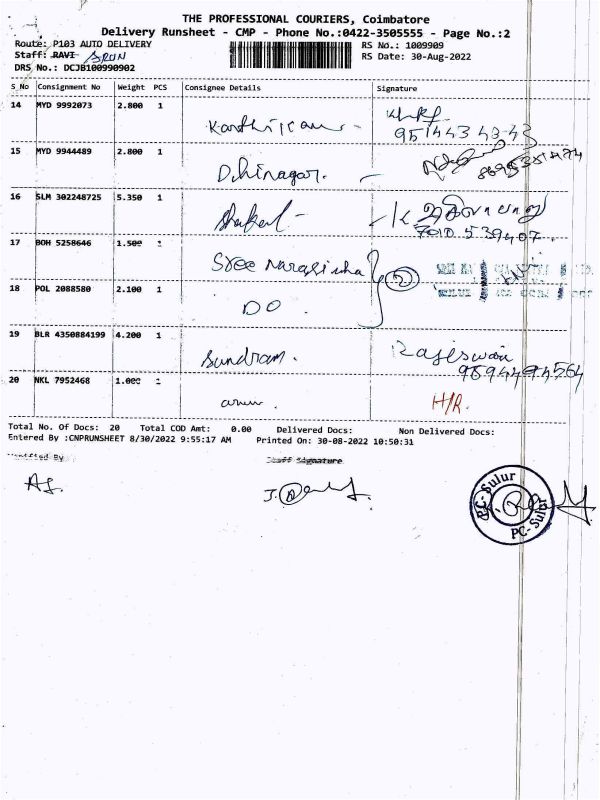 THE PROFESSIONAL COURIERS, Coimbatore
Delivery Runsheet - CMP - Phone No.:0422-3505555 - Page No.:2
Route: P103 AUTO DELIVERY
RS No.: 1009909
Staff: RAVI
RS Date: 30-Aug-2022
DRS No.: DCJB100990902
S_No Consignment No Weight PCS Consignee Details Signature
14 MYD 9992073 2.800 1
95144343-43
15 MYD 9944489 2.800 1
Dhinagar.
16 SLM 302248725 5.350 1
7010539407
17 BOH 5258646 1.500 1
Sree Narasimha
2
18 POL 2088580 2.100 1
DO
19 BLR 4350884199 4.200 1
Sundram. Rajeswari
9894494564
20 NKL 7952468 1.000 1
arun. H/R.
Total No. Of Docs: 20 Total COD Amt: 0.00 Delivered Docs: Non Delivered Docs:
Entered By :CNPRUNSHEET 8/30/2022 9:55:17 AM Printed On: 30-08-2022 10:50:31
Verified By
Staff Signature
PC-Sulur
PC-Sulur